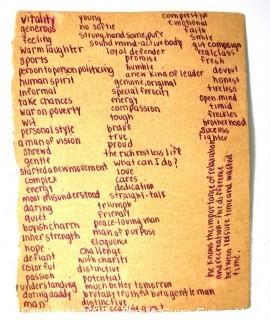 vitality young competitive
generous no softie emotional
feeling strong, handsome, pure faith
warm laughter sound mind-active body smile
sports loyal defender gut campaign
person to person politicing promise real class
human spirit humble fresh
informal a new kind of leader devout
intense genuine, original honest
take chances special ferocity tireless
war on poverty energy open mind
wit compassion timid
personal style tough freckles
a man of vision brave brotherhood
shrewd true success
gentle proud fighter
started a new movement the rich restless life
complex what can I do?
energy love
most misunderstood cares
daring dedication
quiet straight-talk
boyish charm triumph
inner strength friendly
hope peace-loving man
defiant man of purpose
colorful eloquence
passion challenge
understanding with charity
doting daddy distinctive
man potential
much better tomorrow
brutally truthful but a gentle man
distinctive
he knows the importance of relaxation
and recreation - the difference
between leisure time and wasted
time.